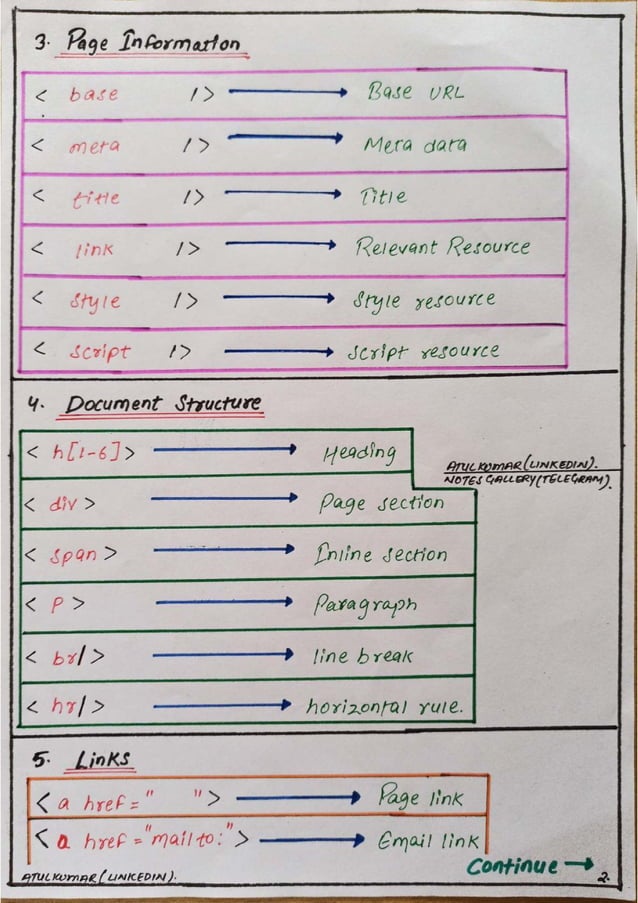 3. Page Information
< base /> → Base URL
< meta /> → Meta data
< title /> → Title
< link /> → Relevant Resource
< style /> → Style resource
< script /> → script resource
4. Document Structure
< h[1-6] > → Heading
ATULKUMAR(LINKEDIN).
NOTES GALLERY(TELEGRAM).
< div > → Page section
< span > → Inline section
< P > → Paragraph
< br/> → line break
< hr/> → horizontal rule.
5. Links
< a href = " " > → Page link
< a href = "mailto:" > → Email link
Continue →
ATULKUMAR(LINKEDIN).
2.